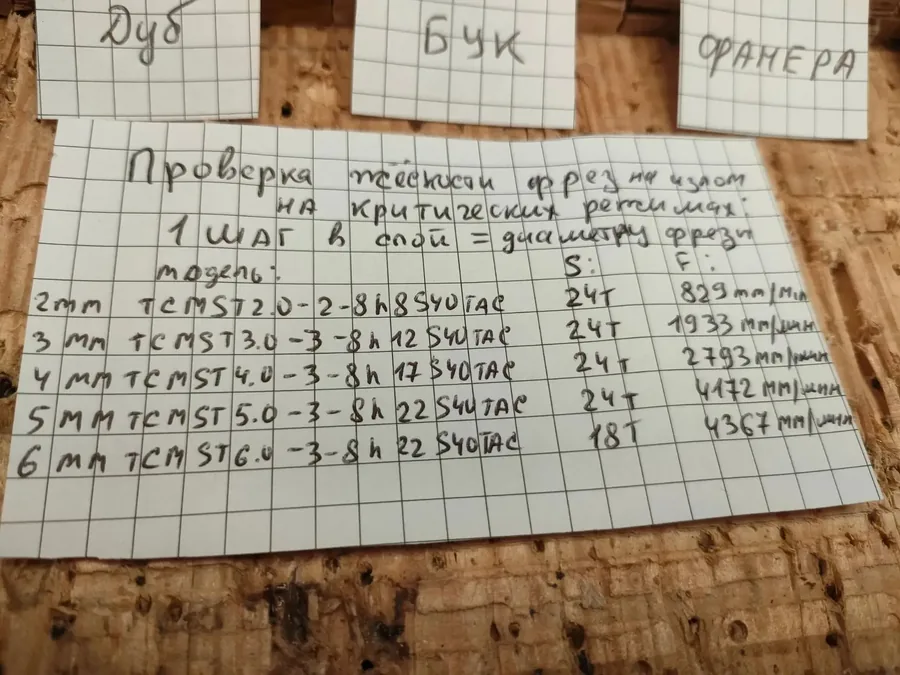 Дуб
БУК
ФАНЕРА
Проверка жёсткости фрез на излом
на критических режимах:
1 шаг в слой = диаметру фрезы
модель: S: F:
2mm TCMST2.0-2-8h8S40TAC 24T 829 mm/мин
3 mm TCMST3.0-3-8h12S40TAC 24T 1933 mm/мин
4 mm TCMST4.0-3-8h17S40TAC 24T 2793 mm/мин
5 mm TCMST5.0-3-8h22S40TAC 24T 4172 mm/мин
6 mm TCMST6.0-3-8h22S40TAC 18T 4367 mm/мин